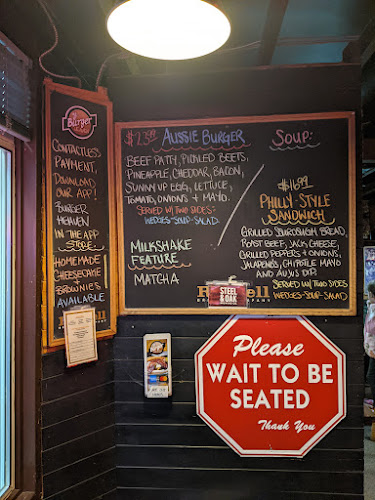 Burger
CONTACTLESS
PAYMENT.
DOWNLOAD
OUR APP!
BURGER
HEAVEN
IN THE APP
STORE
HOMEMADE
CHEESECAKE
+
BROWNIES
AVAILABLE
AUSSIE BURGER
BEEF PATTY, PICKLED BEETS,
PINEAPPLE, CHEDDAR, BACON,
SUNNY UP EGG, LETTUCE,
TOMATO, ONIONS + MAYO.
SERVED WITH TWO SIDES:
WEDGES-SOUP-SALAD
MILKSHAKE
FEATURE
MATCHA
SOUP:
$16.99
PHILLY-STYLE
SANDWICH
GRILLED SOURDOUGH BREAD,
ROAST BEEF, JACK CHEESE,
GRILLED PEPPERS + ONIONS,
JALAPENOS, CHIPOTLE MAYO
AND AUJUS DIP.
SERVED W/ TWO SIDES
WEDGES-SOUP-SALAD
STEEL
& OAK
Please
WAIT TO BE
SEATED
Thank You